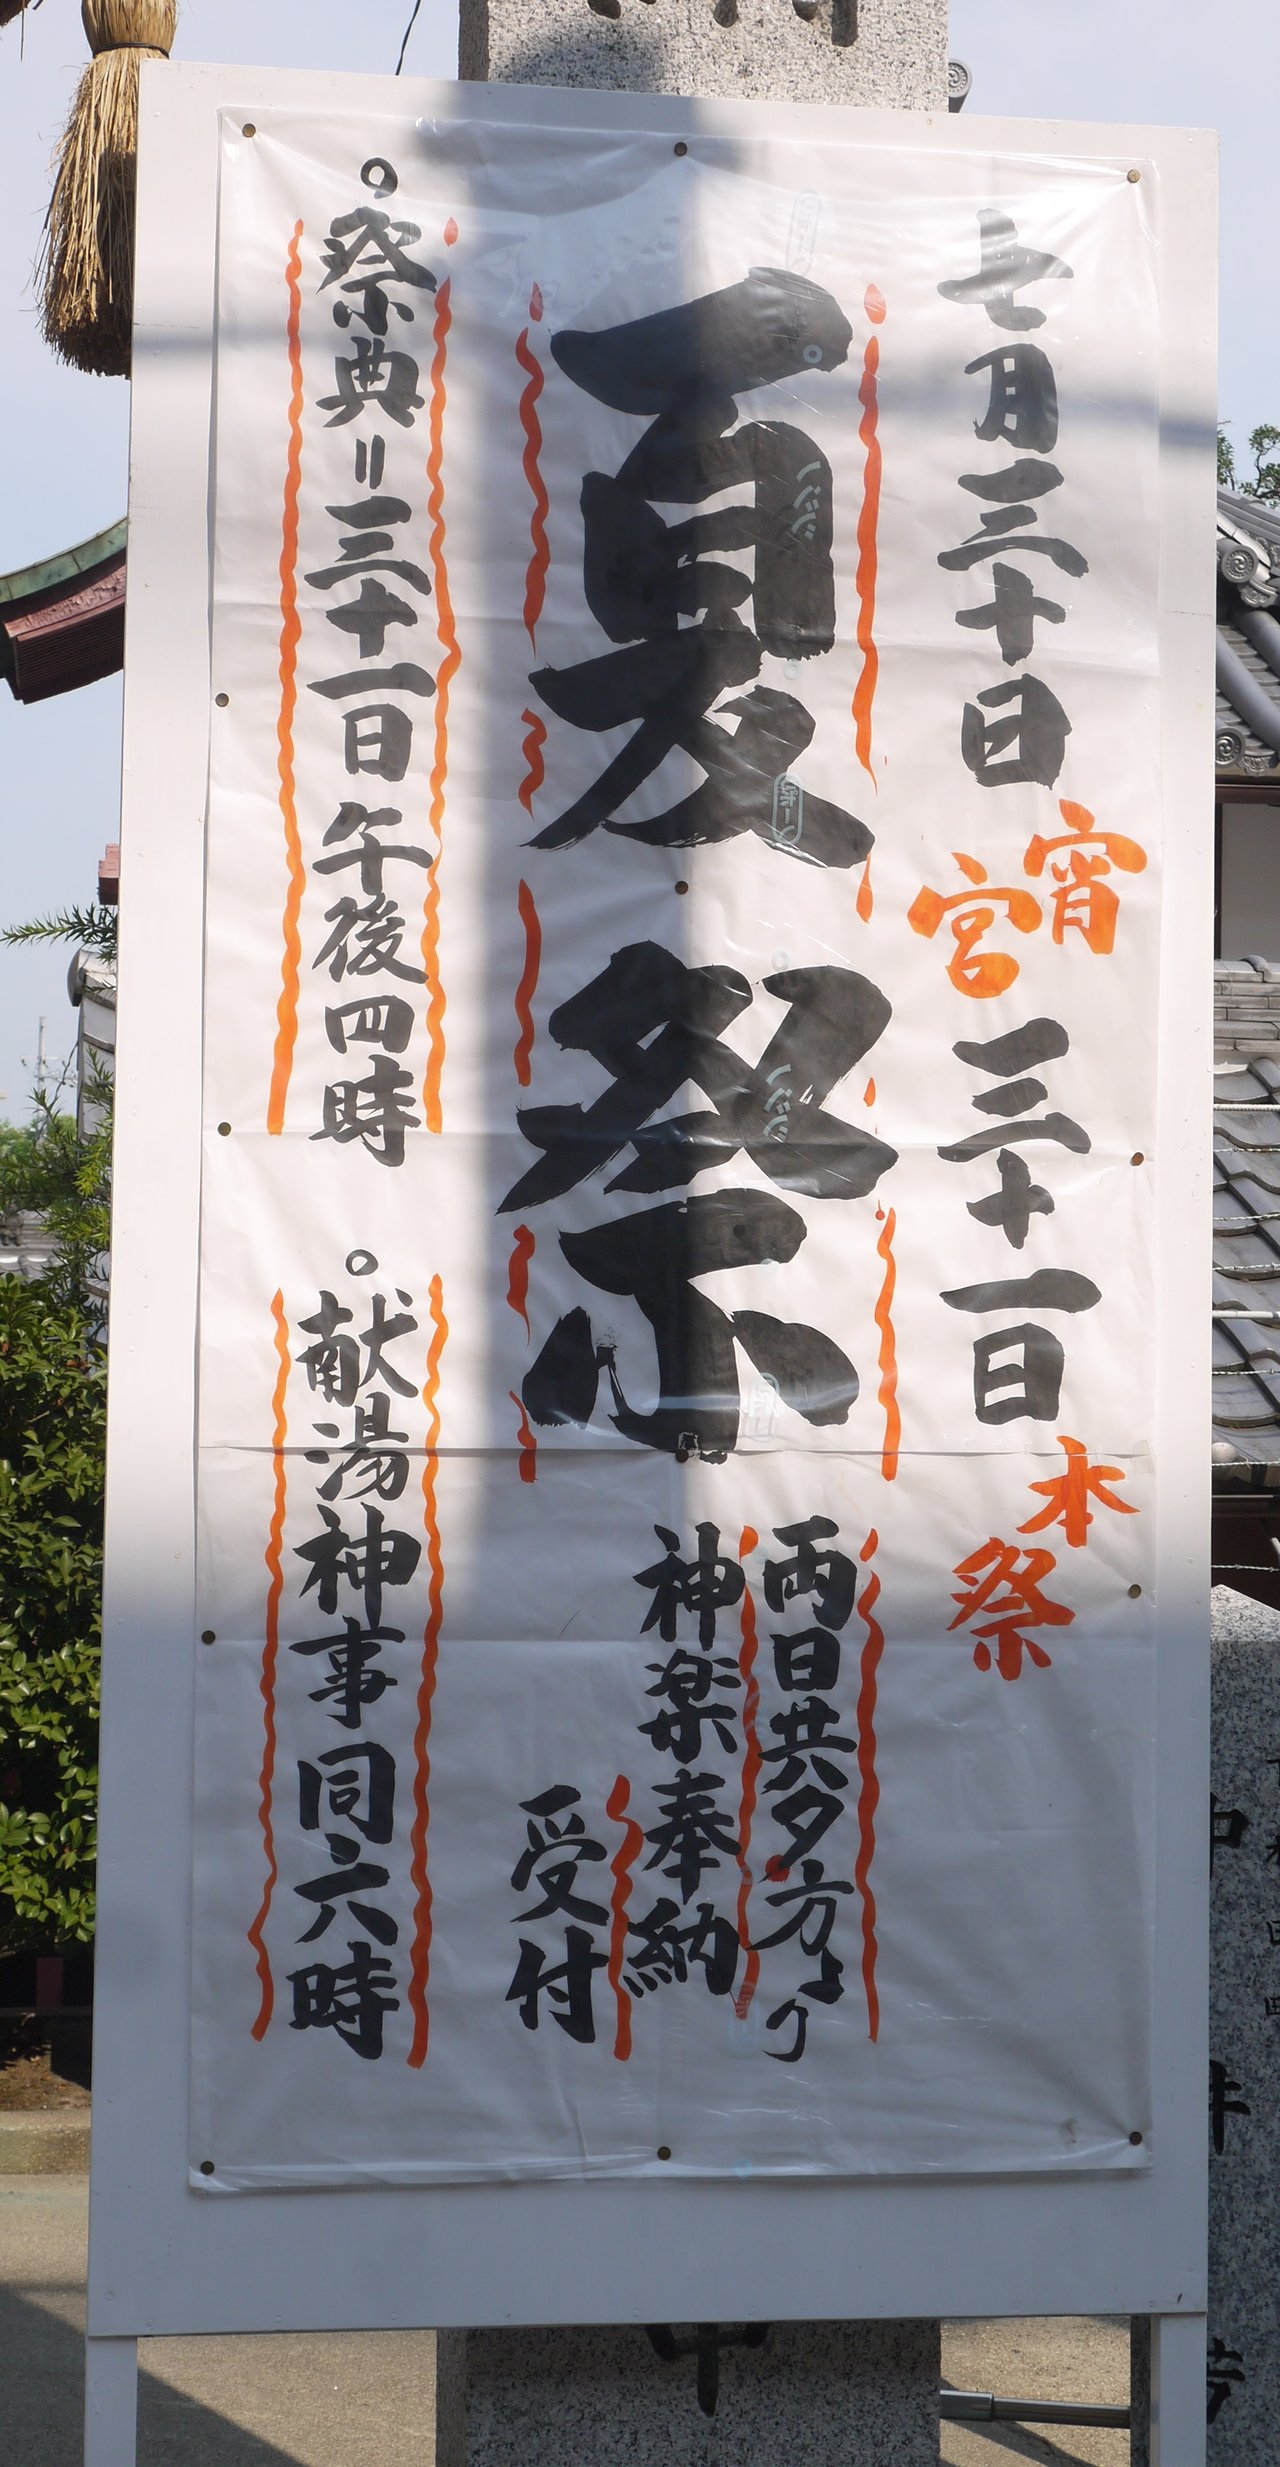 七月三十日 宵宮 三十一日 本祭
夏祭
両日共夕方より
神楽奉納
受付
。祭典＝三十一日午後四時
。献湯神事同六時